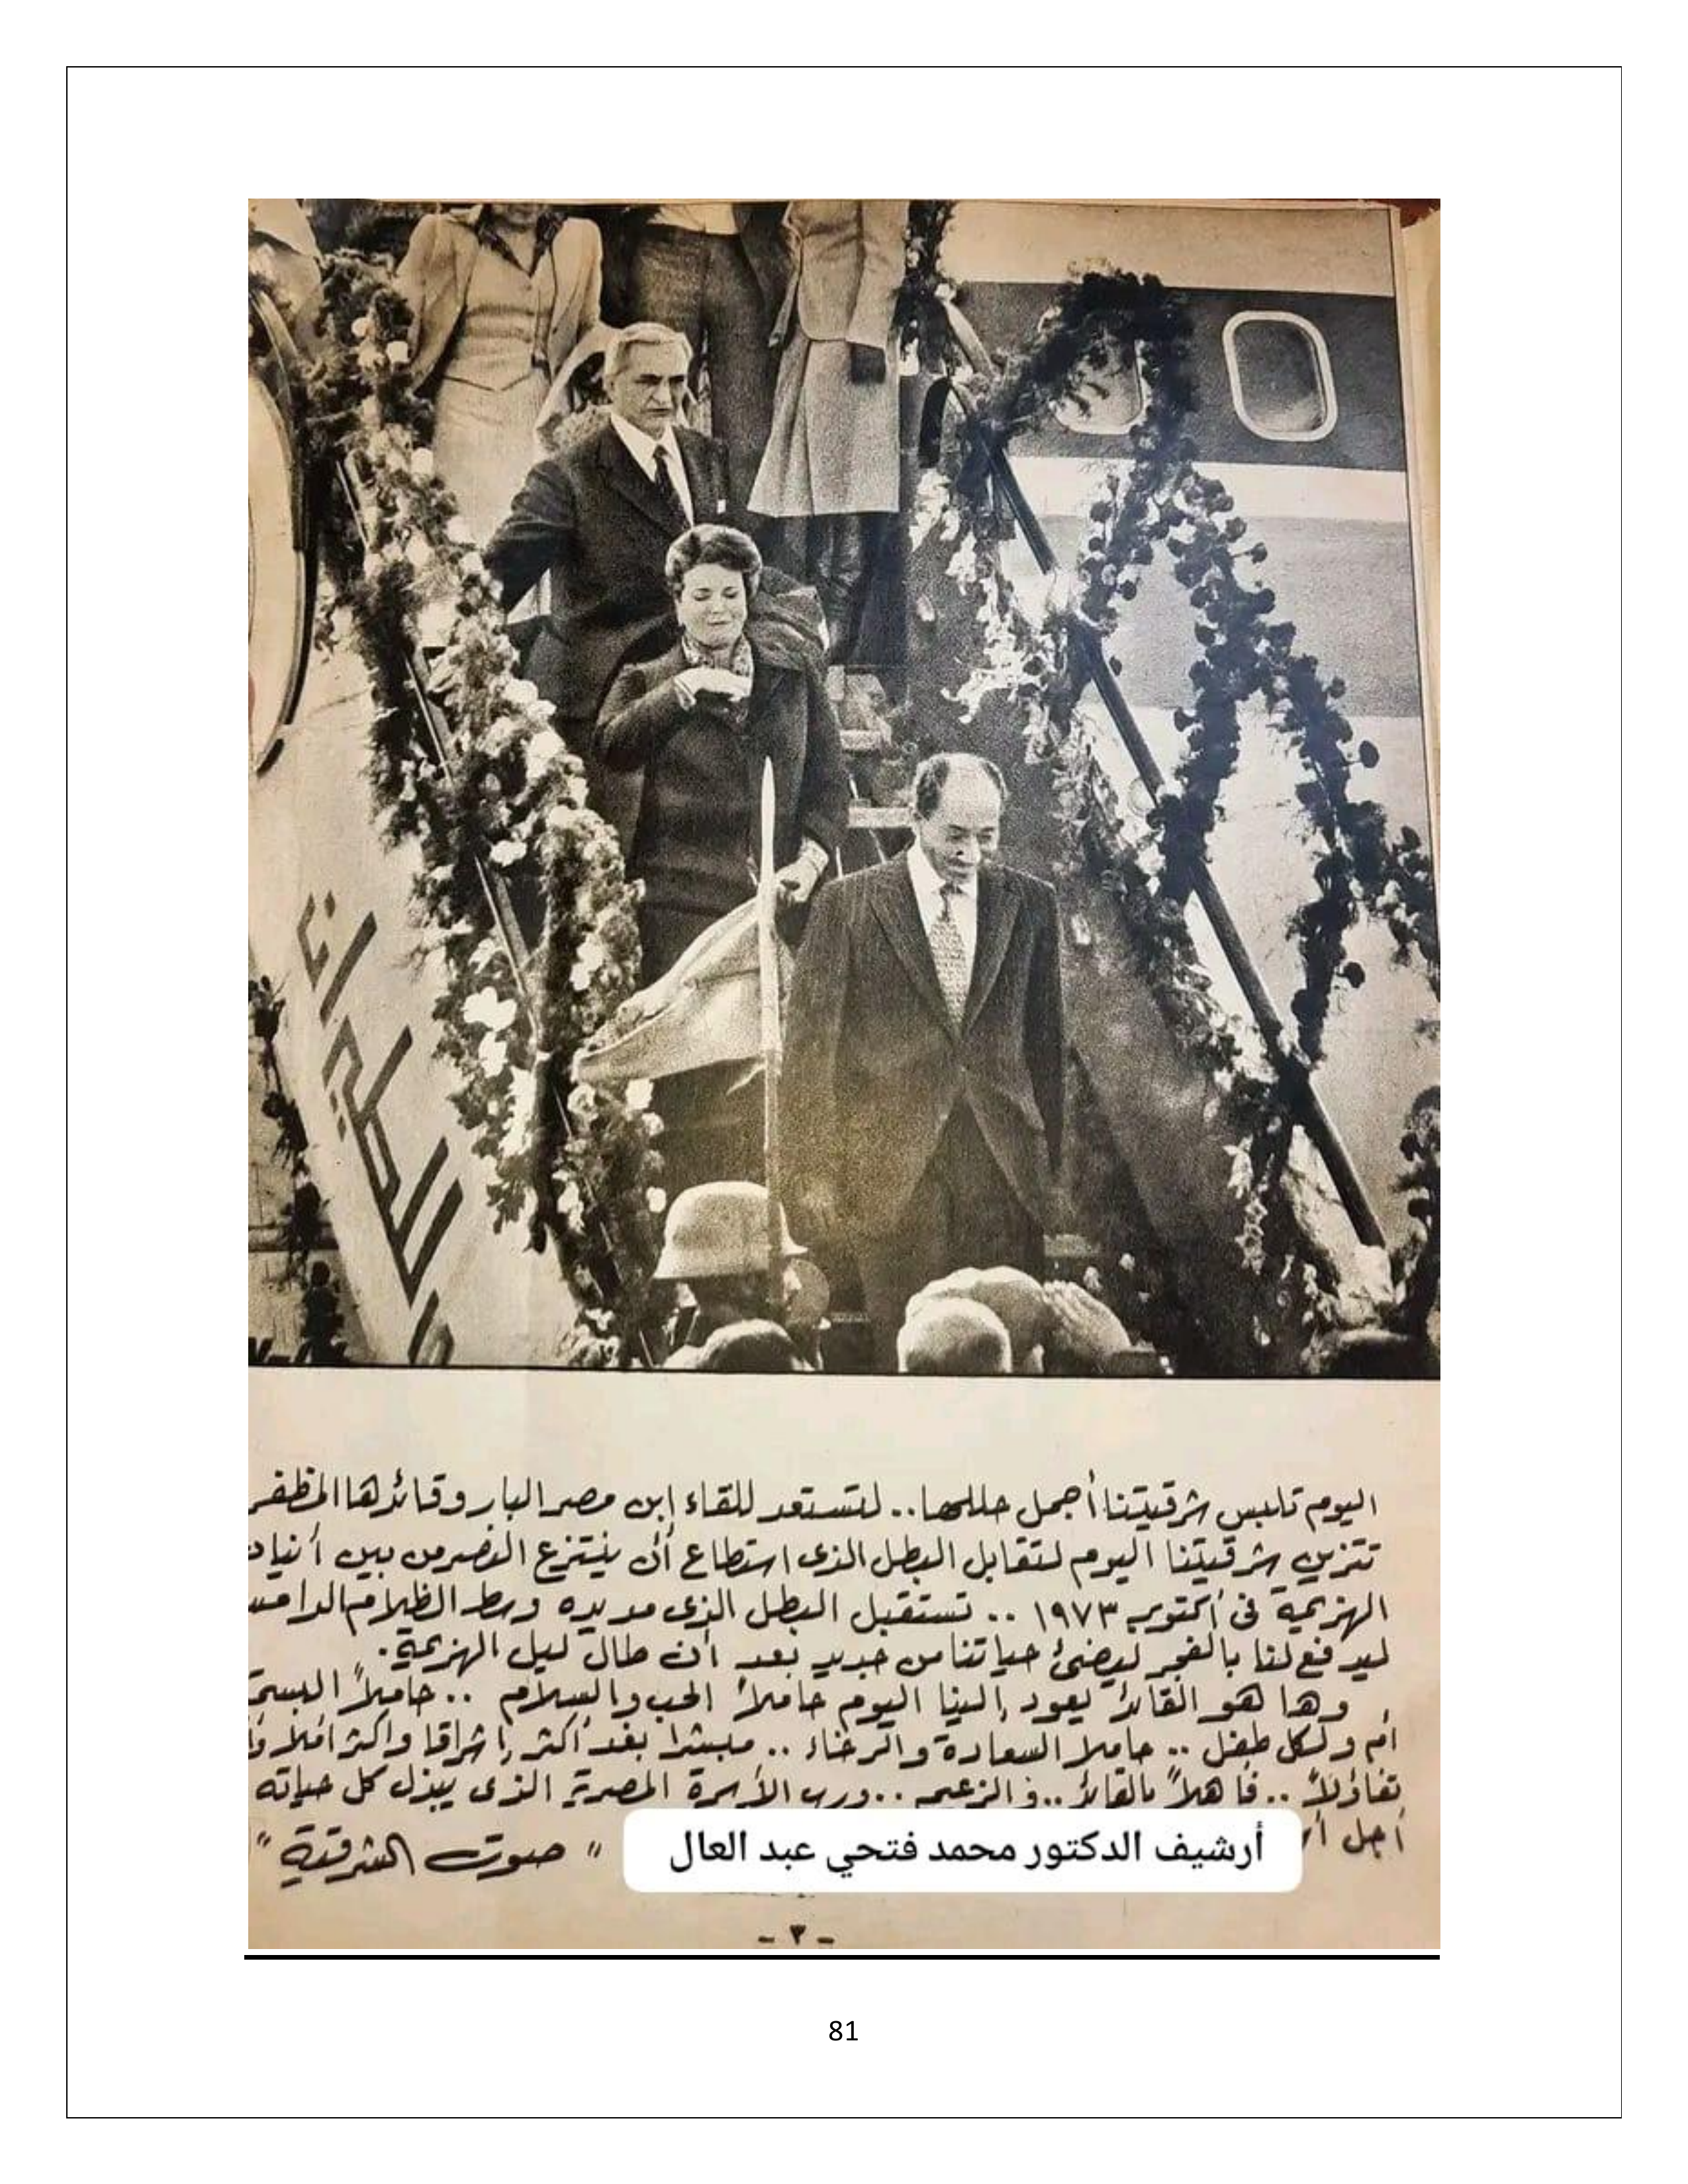 اليوم تلبس شرقيتنا أجمل حللها .. لتستعد للقاء ابن مصر البار وقائدها المظفر
تتزين شرقيتنا اليوم لتقابل البطل الذى استطاع أن ينتزع النصر من بين أنياب
الهزيمة فى أكتوبر ١٩٧٣ .. تستقبل البطل الذى مد يده وسط الظلام الدامس
ليدفع لنا بالفجر ليضئ حياتنا من جديد بعد أن طال ليل الهزيمة.
وها هو القائد يعود إلينا اليوم حاملاً الحب والسلام .. حاملاً
أم ولكل طفل .. حاملا السعادة والرخاء .. مبشرا بغد أكثر إشراقا واكثر أملا
تفاؤلاً .. فأهلاً بالقائد .. والزعيم .. ورب الأسرة المصرية الذى يبذل كل حياته
أجل
" صوت الشرقية "
أرشيف الدكتور محمد فتحي عبد العال
- ٣ -
81